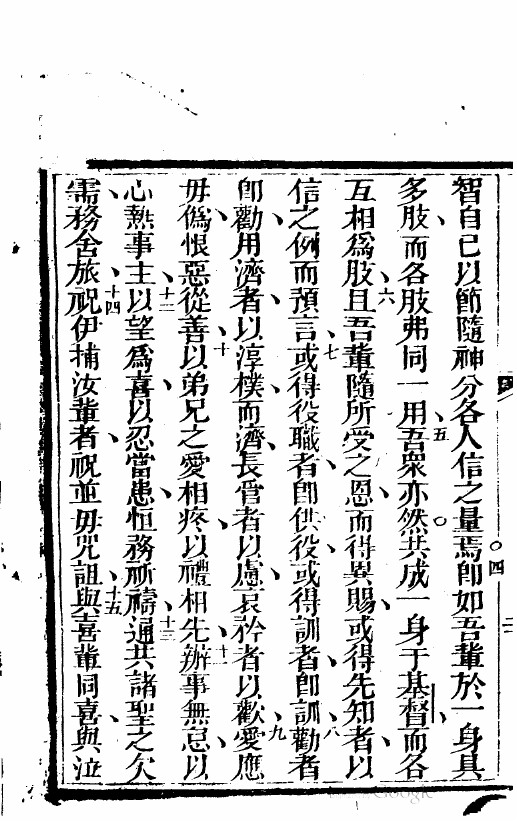 智自己以節隨神分各人信之量焉。四卽如吾輩於一身具
多肢、而各肢弗同一用、五吾衆亦然。共成一身于基督、而各
互相爲肢、六且吾輩隨所受之恩、而得異賜、或得先知者、以
信之例而預言、七或得役職者、卽供役、或得訓者、卽訓、八勸者
卽勸、用濟者、以淳樸而濟、長管者、以慮、哀矜者、以歡、九愛應
毋僞、恨惡從善、十以弟兄之愛相疼、以禮相先、十一辦事無怠、以
心熱事主、十二以望爲喜、以忍當患、恒務祈禱、十三通共諸聖之欠
需、務舍旅、十四祝伊捕汝輩者、祝並毋咒詛、十五與喜輩同喜、與泣